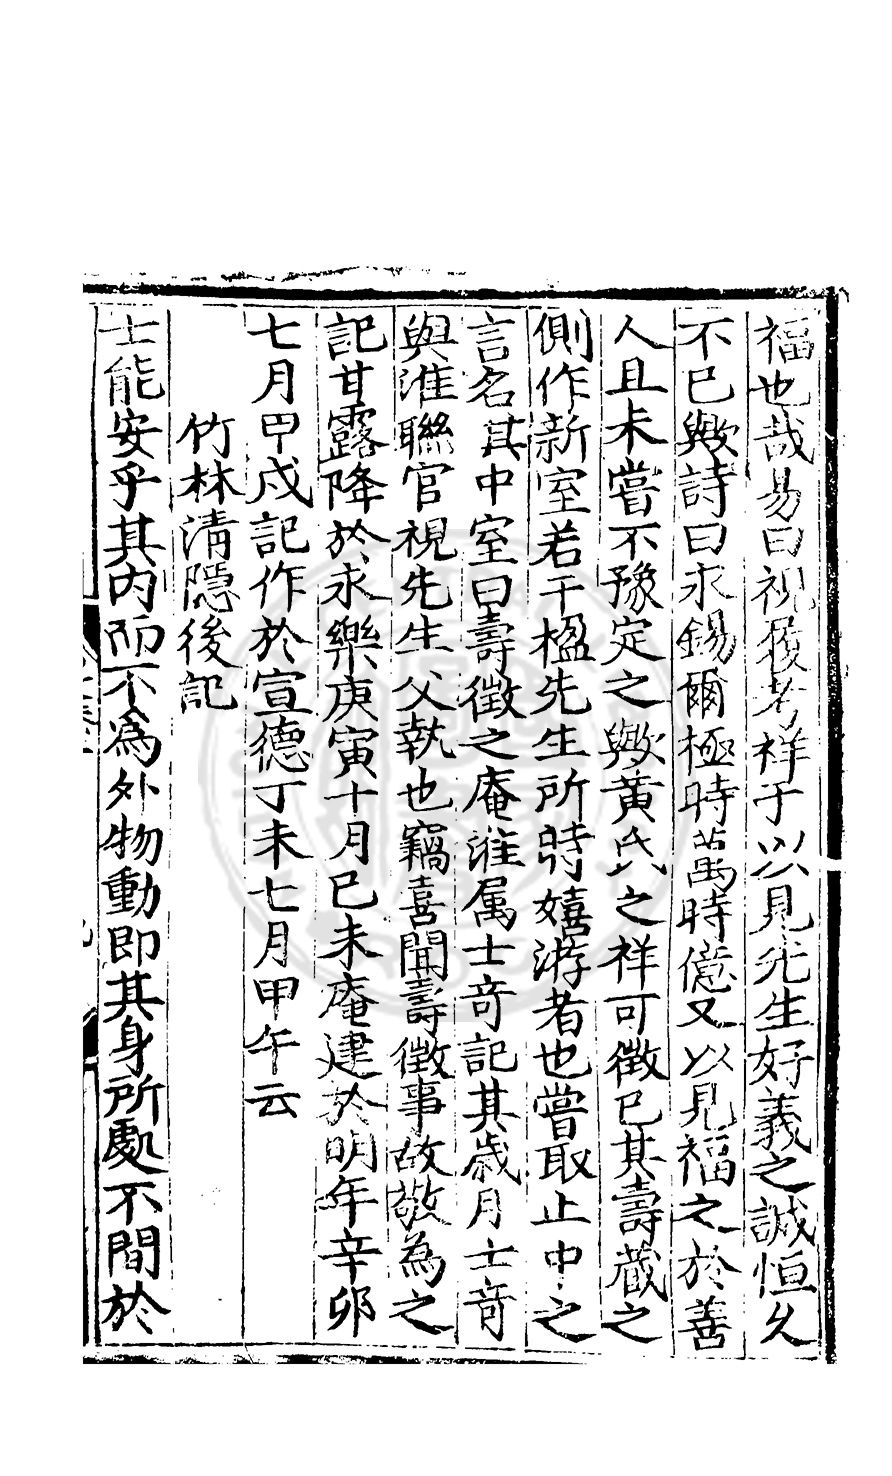 福也哉易曰視履考祥于以見先生好義之誠恒久
不已歟詩曰永錫爾極時萬時億又以見福之於善
人且未嘗不豫定之歟黃氏之祥可徵已其壽藏之
側作新室若干楹先生所時嬉游者也嘗取止中之
言名其中室曰壽徵之庵淮属士竒記其歲月士竒
與淮聯官視先生父執也竊喜聞壽徵事故敬為之
記甘露降於永樂庚寅十月己未庵建於明年辛卯
七月甲戍記作於宣德丁未七月甲午云
竹林清隱後記
士能安乎其内而不為外物動即其身所處不間於